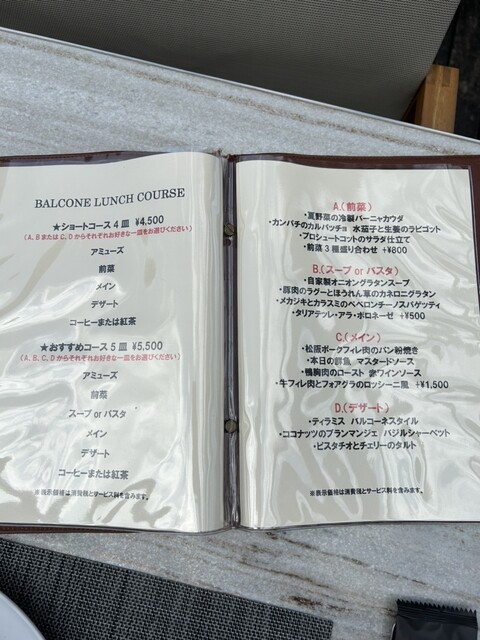 BALCONE LUNCH COURSE
★ショートコース4皿 ¥4,500
(A、BまたはC、Dからそれぞれお好きな一皿をお選びください)
アミューズ
前菜
メイン
デザート
コーヒーまたは紅茶
★おすすめコース5皿 ¥5,500
(A、B、C、Dからそれぞれお好きな一皿をお選びください)
アミューズ
前菜
スープ or パスタ
メイン
デザート
コーヒーまたは紅茶
※表示価格は消費税とサービス料を含みます。
A.(前菜)
・夏野菜の冷製バーニャカウダ
・カンパチのカルパッチョ 水茄子と生姜のラビゴット
・プロシュートコットのサラダ仕立て
・前菜3種盛り合わせ +¥800
B.(スープ or パスタ)
・自家製オニオングラタンスープ
・豚肉のラグーとほうれん草のカネロニグラタン
・メカジキとカラスミのペペロンチーノスパゲッティ
・タリアテッレ・アラ・ボロネーゼ +¥500
C.(メイン)
・松阪ポークフィレ肉のパン粉焼き
・本日の鮮魚 マスタードソース
・鴨胸肉のロースト 赤ワインソース
・牛フィレ肉とフォアグラのロッシーニ風 +¥1,500
D.(デザート)
・ティラミス バルコーネスタイル
・ココナッツのブランマンジェ バジルシャーベット
・ピスタチオとチェリーのタルト
※表示価格は消費税とサービス料を含みます。